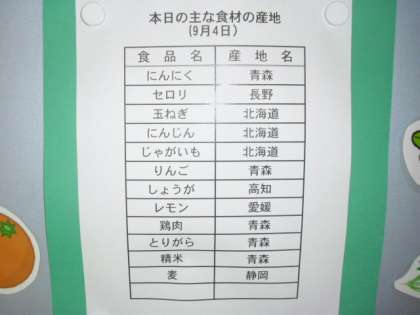 本日の主な食材の産地
(9月4日)
食品名 産地名
にんにく 青森
セロリ 長野
玉ねぎ 北海道
にんじん 北海道
じゃがいも 北海道
りんご 青森
しょうが 高知
レモン 愛媛
鶏肉 青森
とりがら 青森
精米 青森
麦 静岡